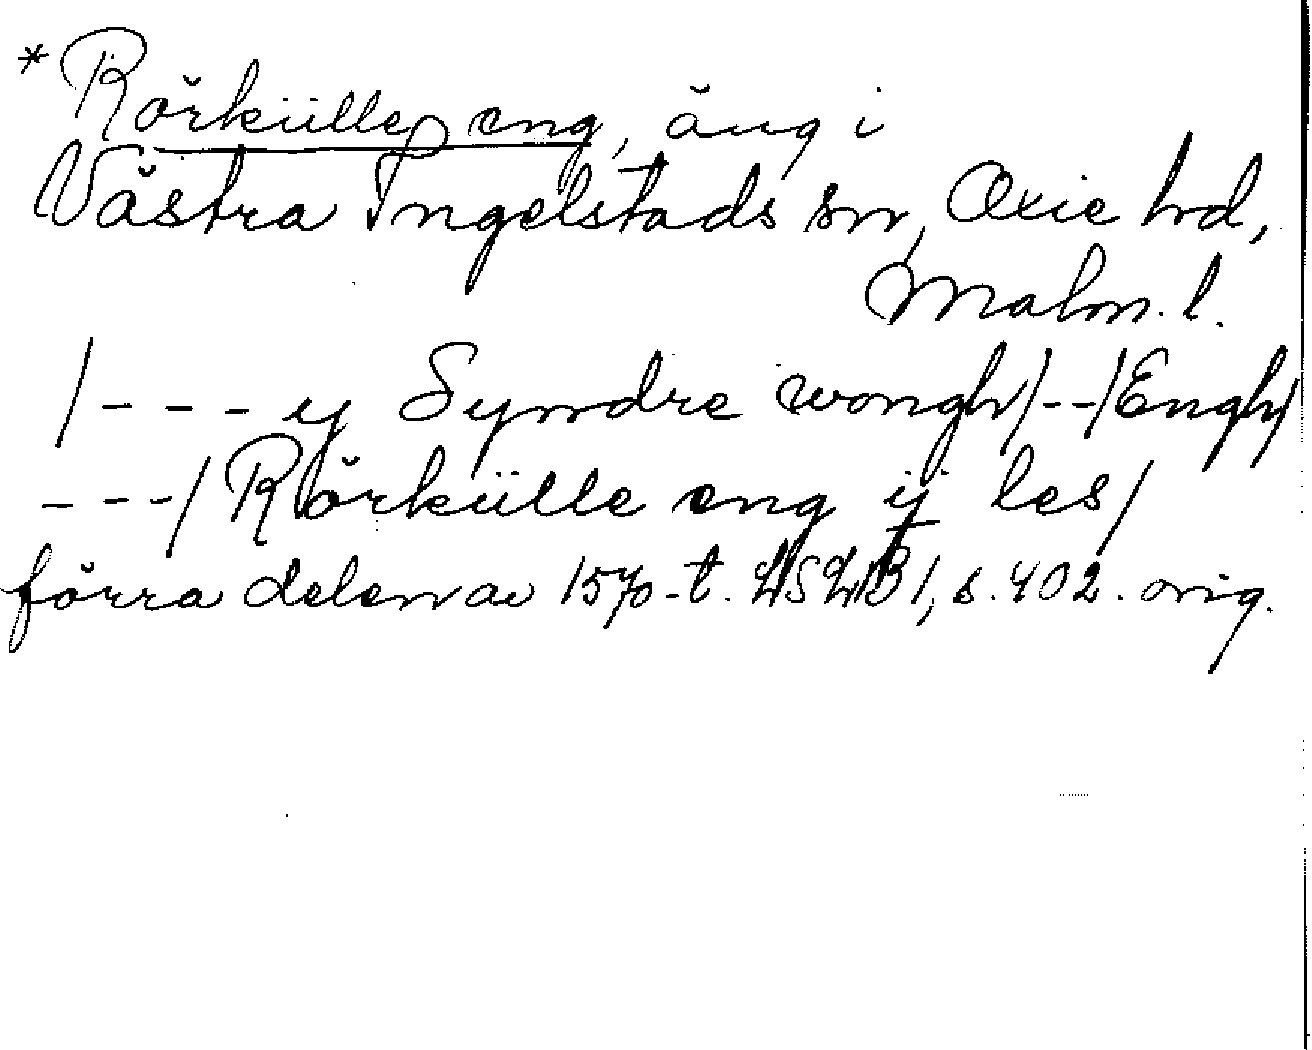 * Rörkülle eng, äng i
Västra Ingelstads sn, Oxie hd,
Malm. l.
/ - - - y Syndre wongh / - - / Engh /
- - - / Rörkülle eng ij les /
förra delen av 1570-t. LSLB 1, s. 402. orig.